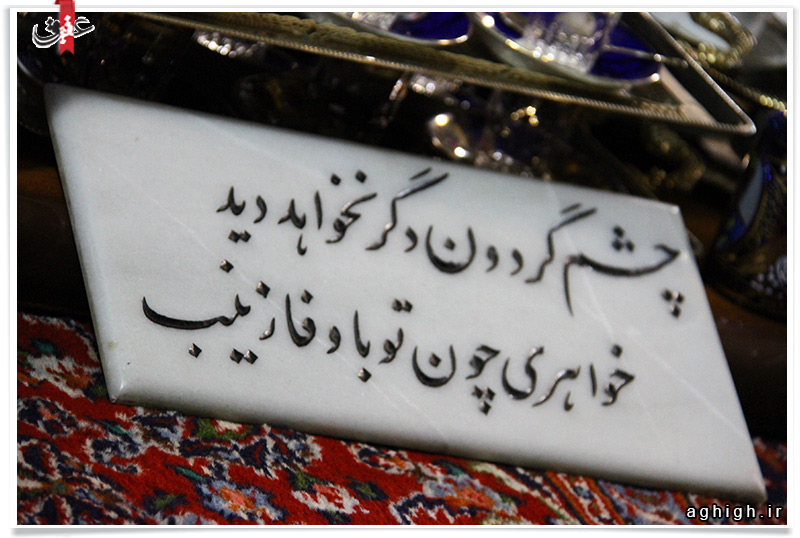 عقیق
چشم گردون دگر نخواهد دید
خواهری چون تو با وفا زینب
aghigh.ir